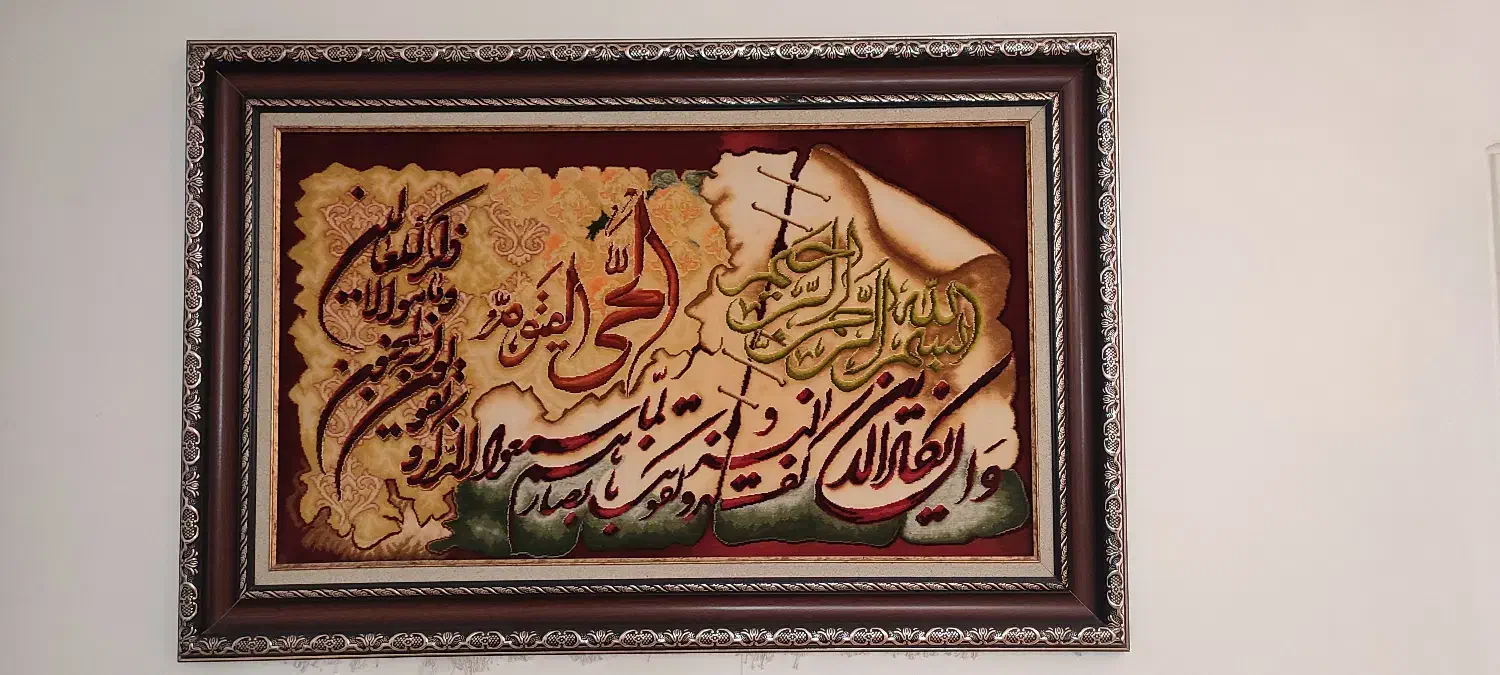 بسم الله الرحمن الرحيم
الله الحی القیوم
وَان یکاد الذین کفروا لیزلقونک بابصارهم لمّا سمعوا الذکر و
یقولون
انه لمجنون
وما هو الا
ذکر للعالمین